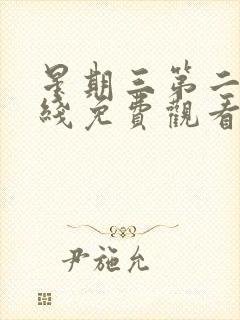 星期三第二
綫免費觀看
尹施允